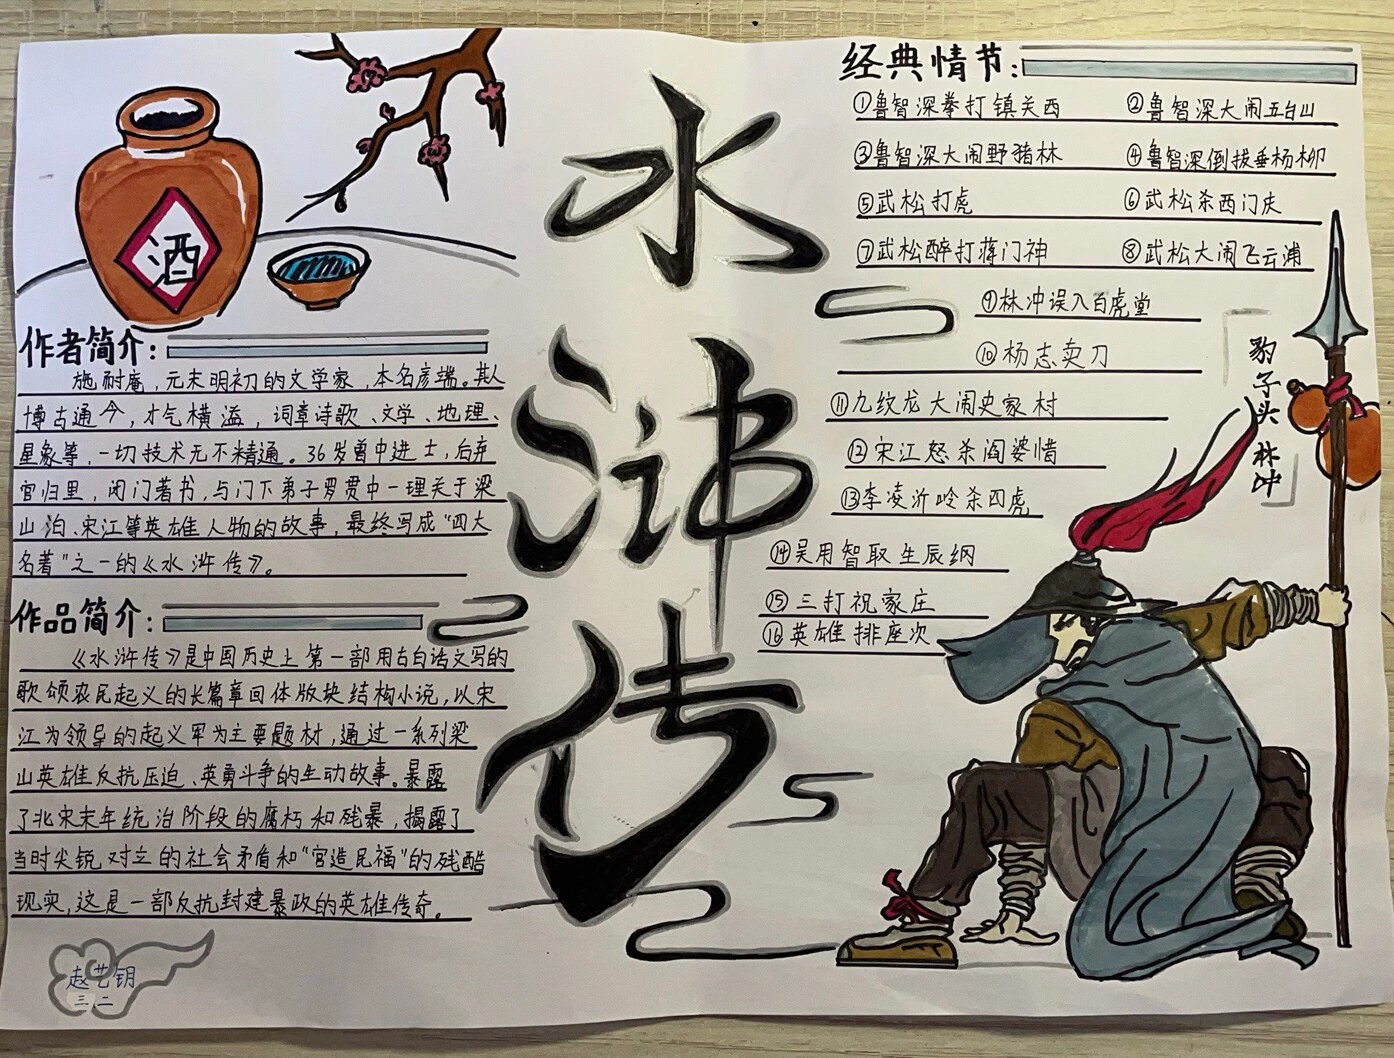 酒
水浒传
作者简介:
施耐庵,元末明初的文学家,本名彦端。其人
博古通今,才气横溢,词章诗歌、文学、地理、
星象等,一切技术无不精通。36岁曾中进士,后弃
官归里,闭门著书,与门下弟子罗贯中一理关于梁
山泊、宋江等英雄人物的故事,最终写成“四大
名著”之一的《水浒传》。
作品简介:
《水浒传》是中国历史上第一部用古白话文写的
歌颂农民起义的长篇章回体版块结构小说,以宋
江为领导的起义军为主要题材,通过一系列梁
山英雄反抗压迫、英勇斗争的生动故事。暴露
了北宋末年统治阶段的腐朽和残暴,揭露了
当时尖锐对立的社会矛盾和“官造民福”的残酷
现实,这是一部反抗封建暴政的英雄传奇。
赵艺钥
三二
经典情节:
①鲁智深拳打镇关西 ②鲁智深大闹五台山
③鲁智深大闹野猪林 ④鲁智深倒拔垂杨柳
⑤武松打虎 ⑥武松杀西门庆
⑦武松醉打蒋门神 ⑧武松大闹飞云浦
⑨林冲误入白虎堂
⑩杨志卖刀
⑪九纹龙大闹史家村
⑫宋江怒杀阎婆惜
⑬李凌沂岭杀四虎
⑭吴用智取生辰纲
⑮三打祝家庄
⑯英雄排座次
豹子头林冲